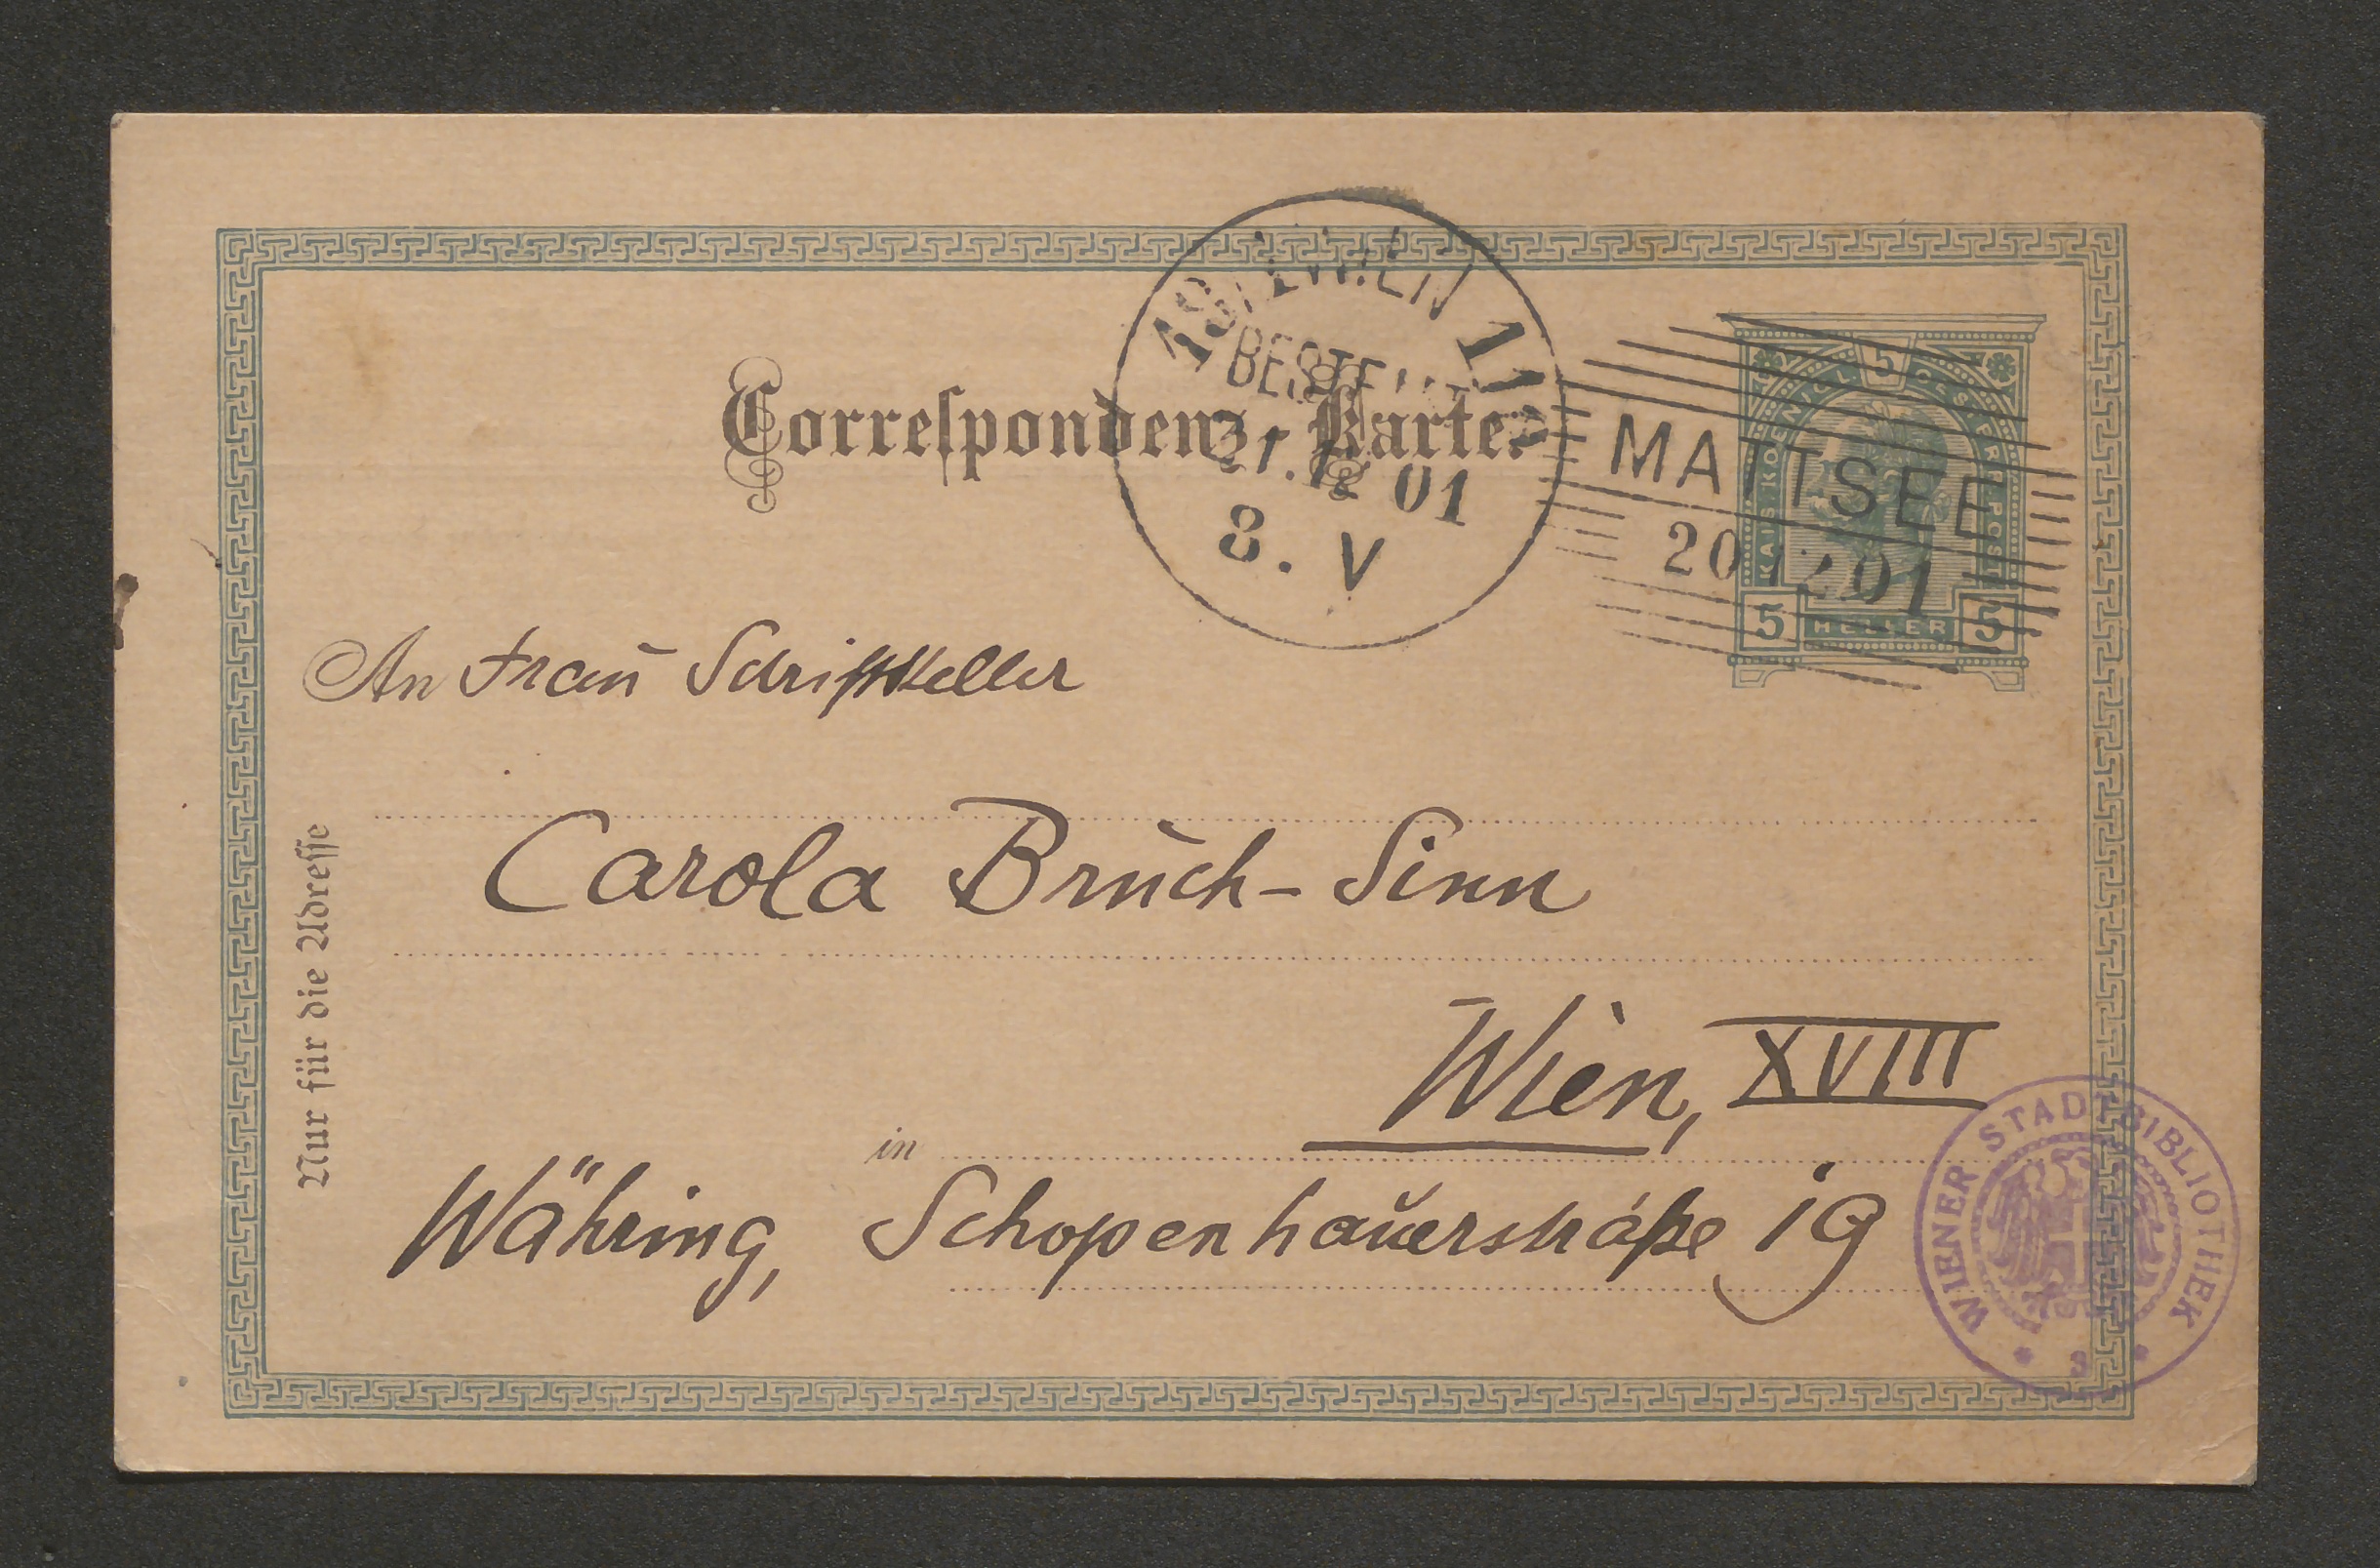 18/1 WIEN 111
BESTELLT
21.12 01
8. V
Correspondenz-Karte.
5
KAIS. KOENIGL. OESTERR. POST
5 HELLER 5
MATTSEE
20 12 01
An Frau Schriftsteller
Carola Bruch-Sinn
Wien, XVIII
in
Währing, Schopenhauerstraße 19
Nur für die Adresse
WIENER STADTBIBLIOTHEK